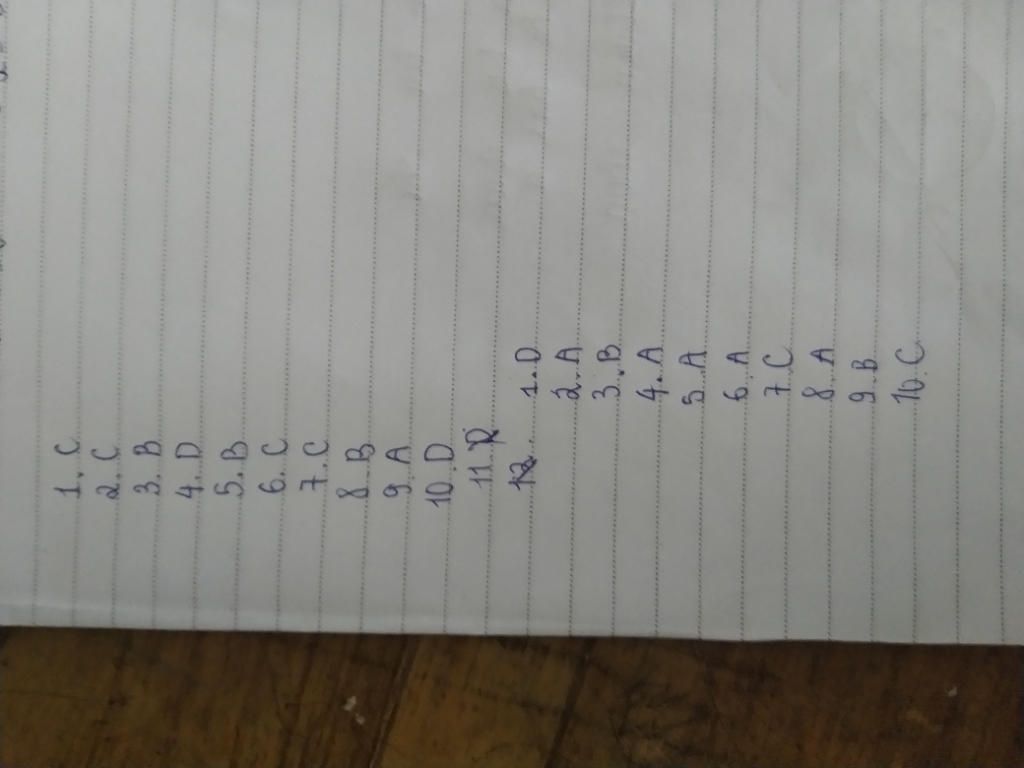 1. C
2. C
3. B
4. D
5. B
6. C
7. C
8. B
9. A
10. D
11.
12.
1. D
2. A
3. B
4. A
5. A
6. A
7. C
8. A
9. B
10. C